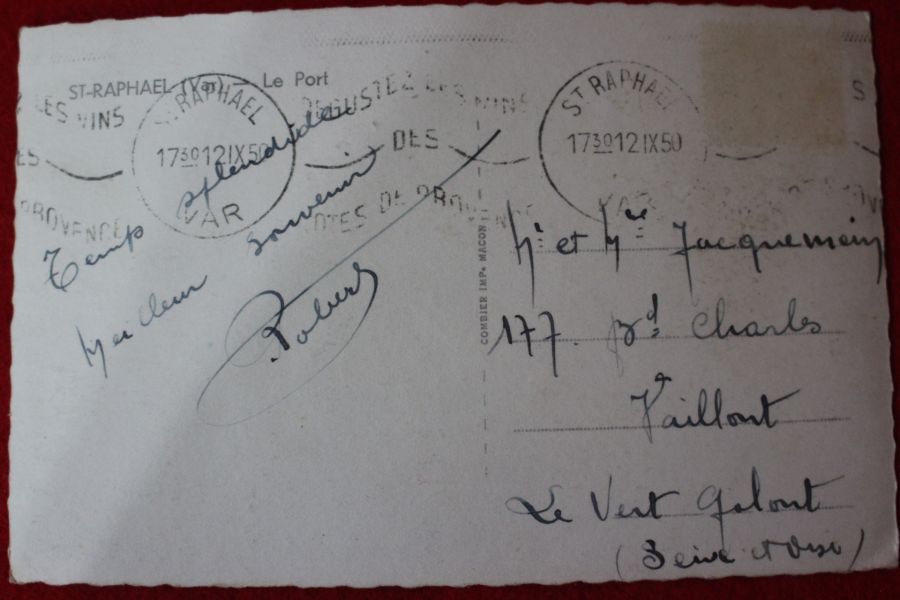 ST-RAPHAEL (Var) — Le Port
ST RAPHAEL
17 30 12 IX 50
VAR
LES VINS
DES
PROVENCE
DEGUSTEZ LES VINS
DES
COTES DE PROVENCE
ST RAPHAEL
17 30 12 IX 50
VAR
Temp splendide
Meilleur souvenir
Robert
COMBIER IMP. MACON
Mr et Mme Jacquemain
177. Bd Charles
Vaillant
Le Vert Galant
(Seine et Oise)